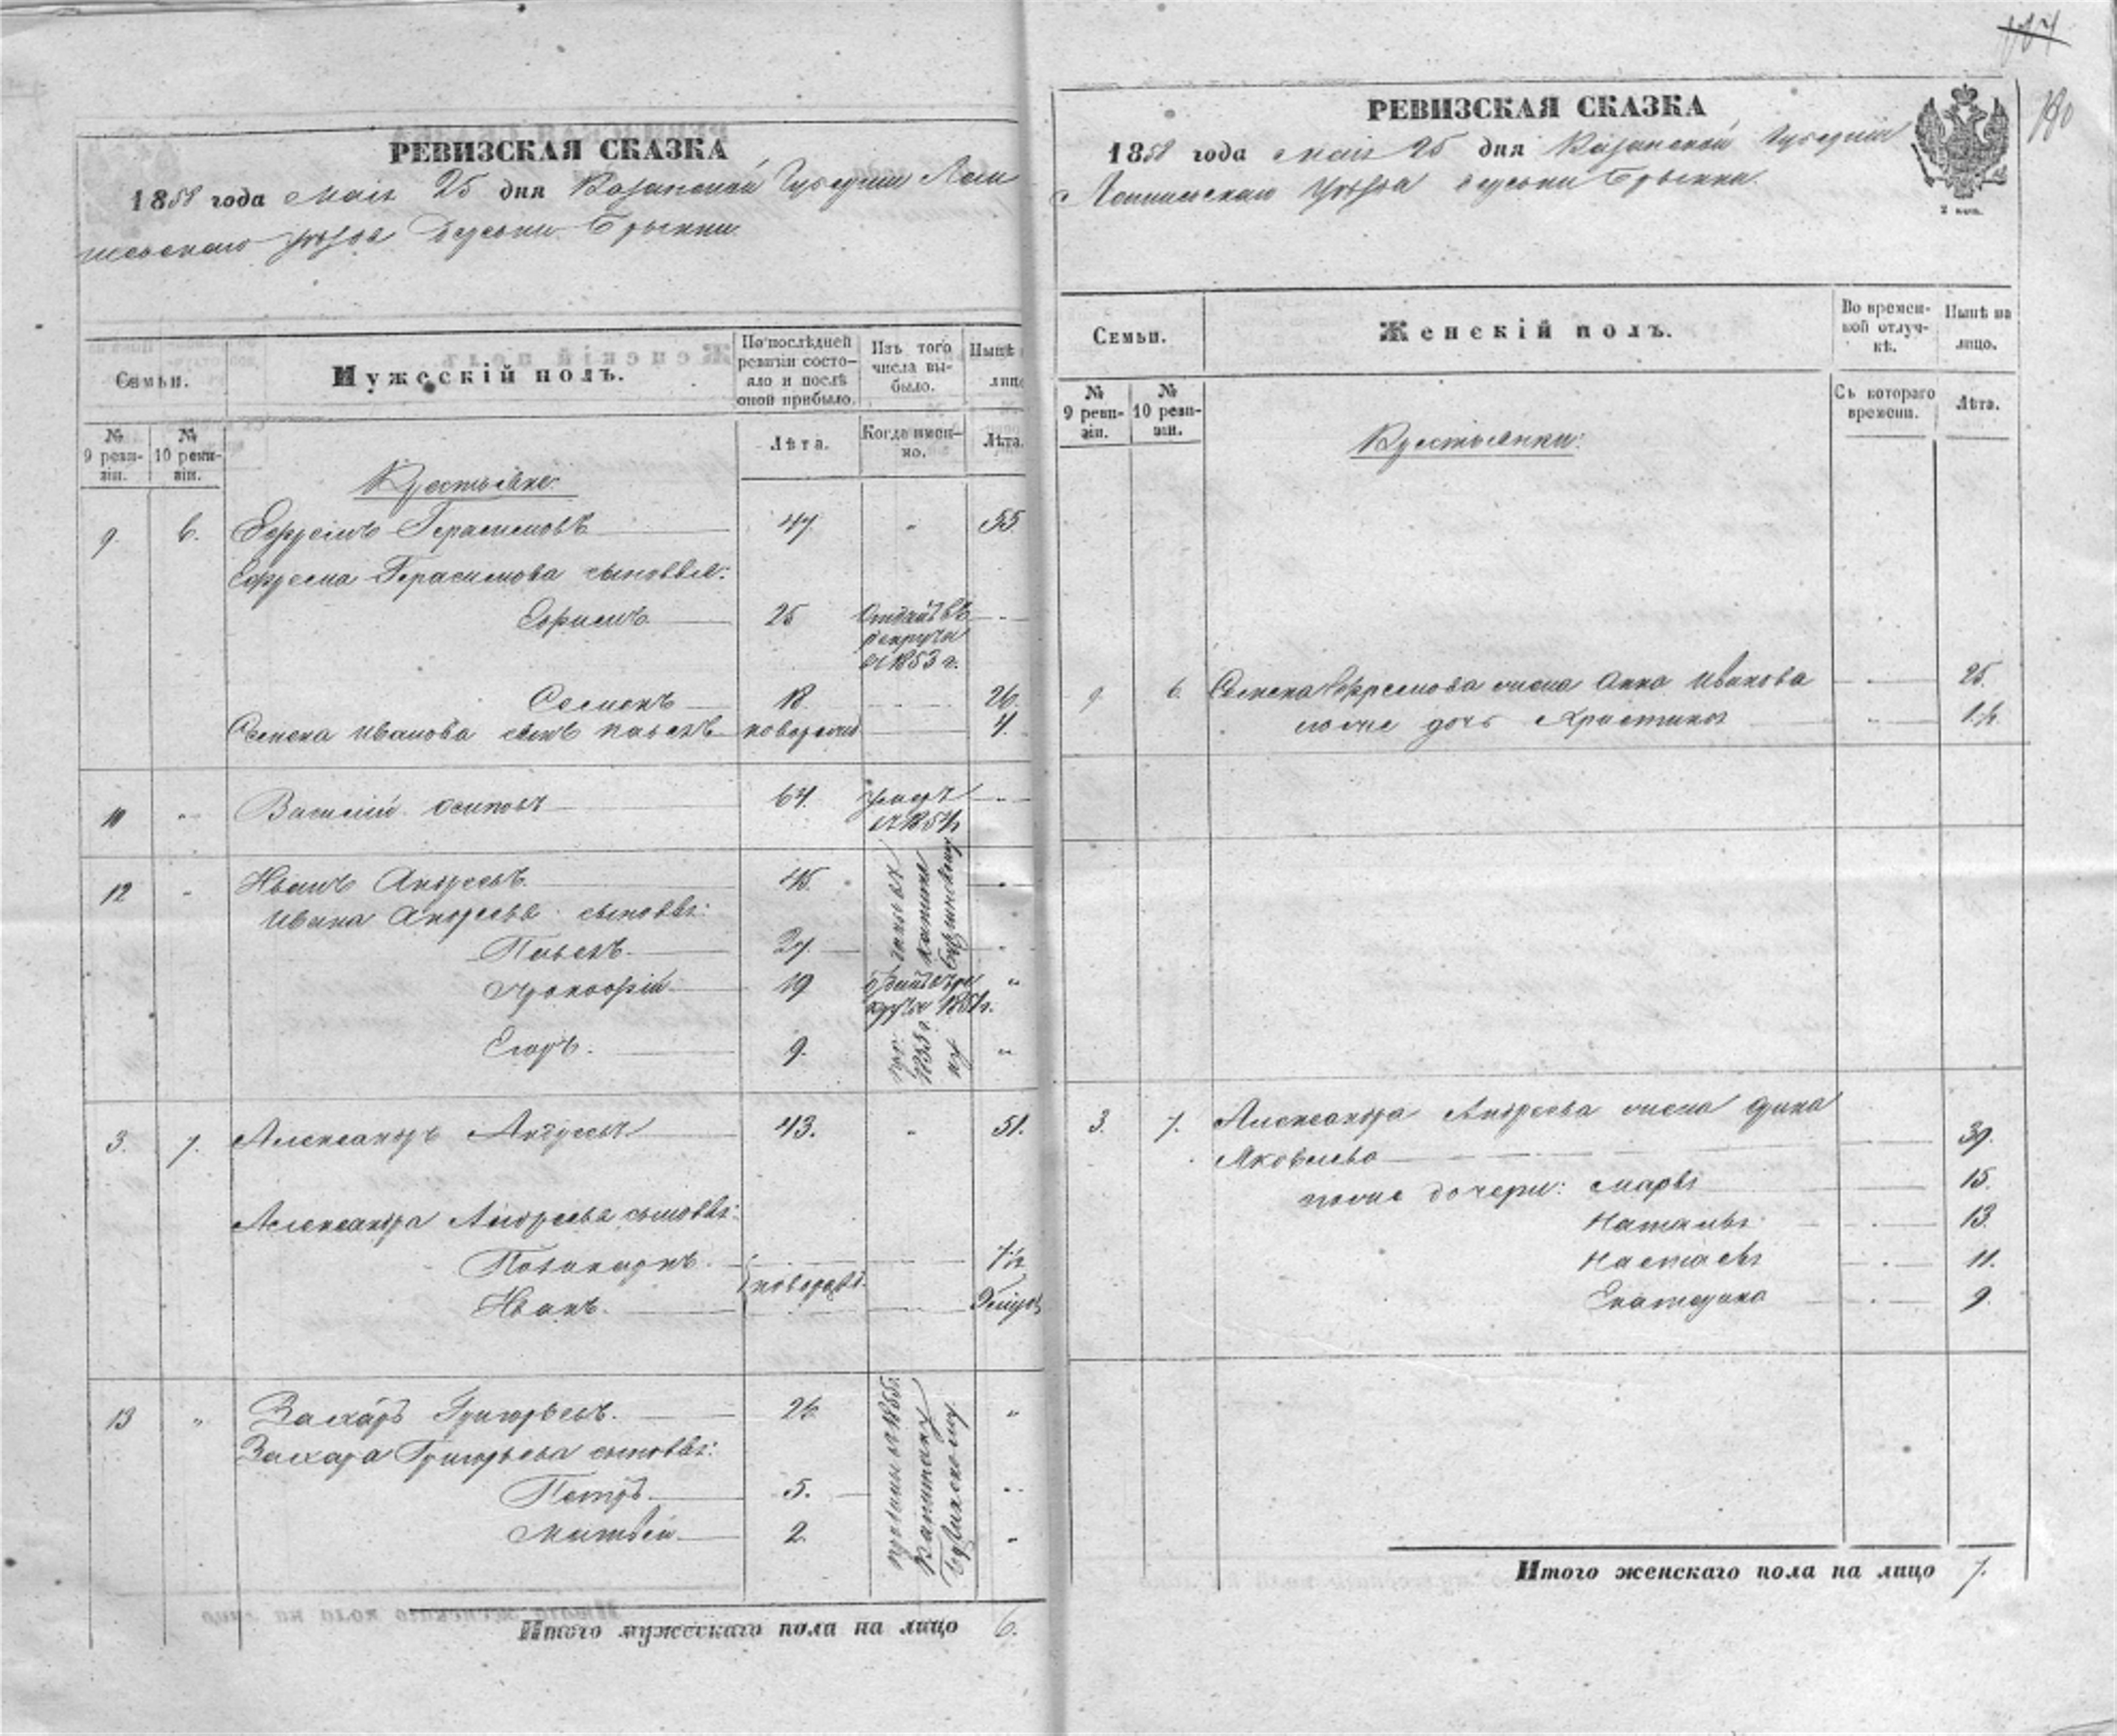 РЕВИЗСКАЯ СКАЗКА
1858 года мая 25 дня Казанской Губернии Лаи
шевскаго уѣзда деревни
Семьи.
Мужескій полъ.
По послѣдней
ревизіи состо-
яло и послѣ
оной прибыло.
Изъ того
числа вы-
было.
Нынѣ
лицо
№
9 реви-
зіи.
№
10 реви-
зіи.
Лѣта.
Когда имен-
но.
Лѣта.
Крестьяне:
9. 6. Ефремъ Герасимовъ 47. " 55.
Ефрема Герасимова сыновья:
Ефимъ 25 Отданъ въ
рекруты
въ 1853 г.
Семенъ 18. 26.
Семена Иванова сынъ Павелъ новорожд 4.
11 " Василій Осиповъ 64. умеръ
въ 1854
12 " Иванъ Андреевъ 45.
Ивана Андреева сыновья:
Павелъ 27.
Прокофій 19 отданъ въ ре
круты 1854 г. "
Егоръ. 9. "
3. 7. Александръ Андреевъ 43. " 51.
Александра Андреева сыновья:
Поликарпъ. 7½
новорожд.
Иванъ.
13 " Захаръ Григорьевъ. 26 "
Захара Григорьева сыновья:
Петръ 5. "
Матвей 2. "
проданы въ 1855 г.
Капитану
Итого мужескаго пола на лицо 6.
РЕВИЗСКАЯ СКАЗКА
1858 года мая 25 дня Казанской Губерніи
Лаишевскаго уѣзда деревни
Семьи.
Женскій полъ.
Во времен-
ной отлуч-
кѣ.
Нынѣ на
лицо.
№
9 реви-
зіи.
№
10 реви-
зіи.
Съ котораго
времени.
Лѣта.
Крестьянки:
9. 6. Семена Ефремова жена Анна Иванова 25.
дочь Христинья 1½.
3. 7. Александра Андреева жена
Яковлева 39.
дочери: Марья 15.
Наталья 13.
Настасья 11.
Екатерина 9.
Итого женскаго пола на лицо 7.